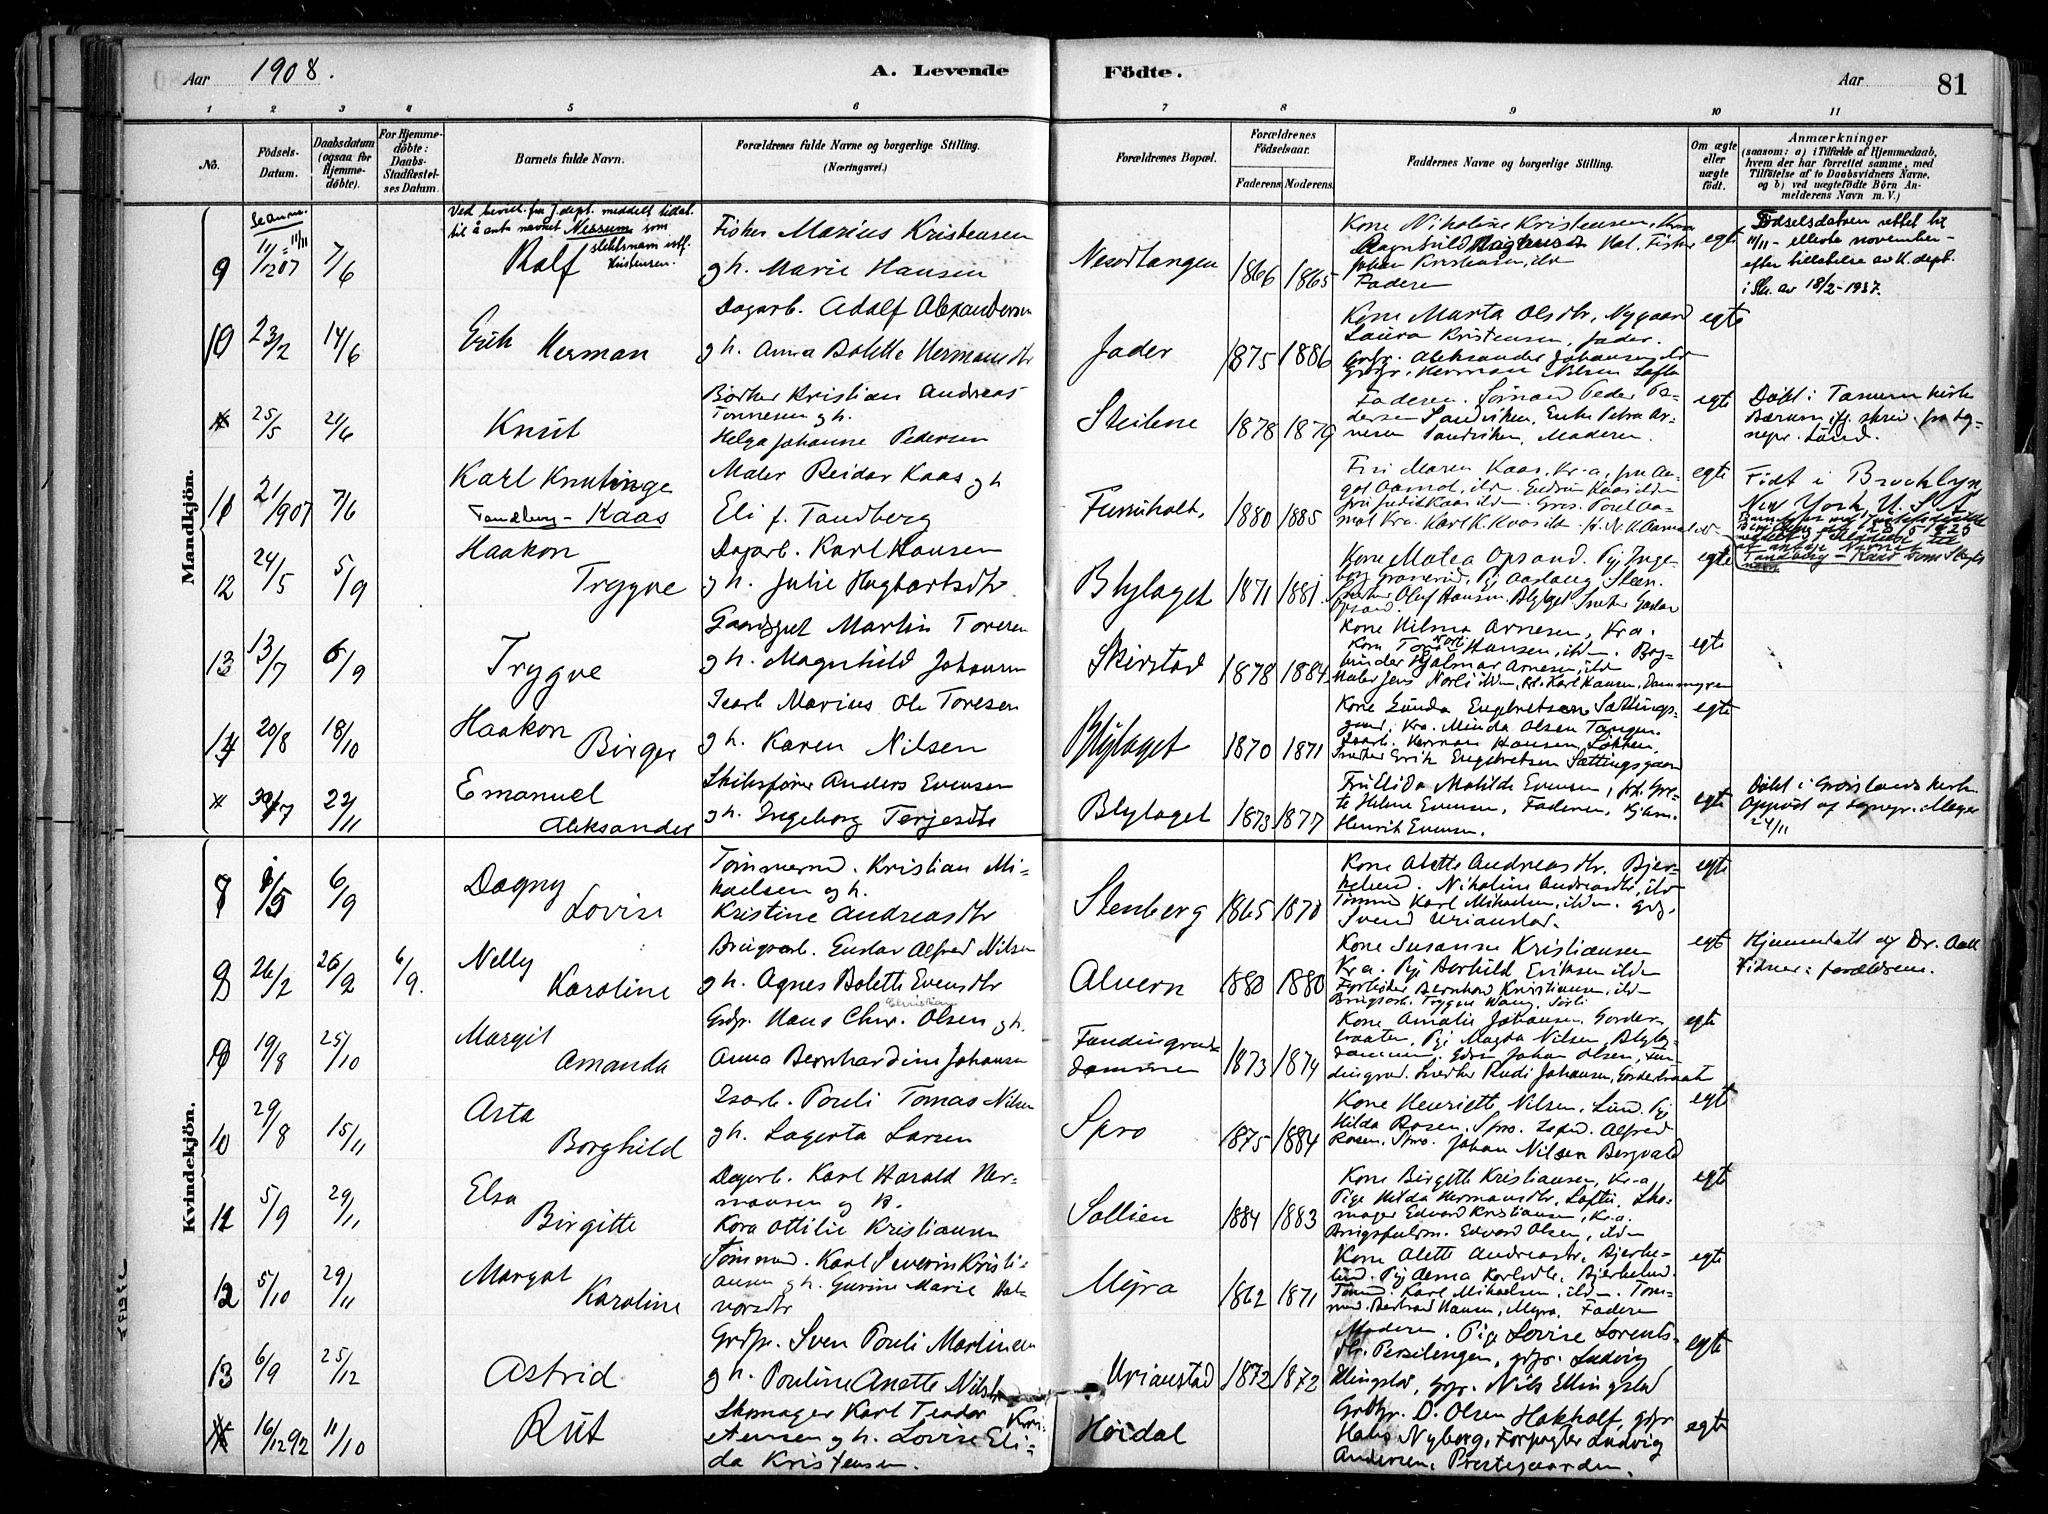 Aar 1908. A. Levende Födte. Aar 81
1 2 3 4 5 6 7 8 9 10 11
No.
Födsels-Datum.
Daabsdatum (ogsaa for Hjemme-döbte).
For Hjemme-döbte: Daabs-Stadfæstel-ses Datum.
Barnets fulde Navn.
Forældrenes fulde Navne og borgerlige Stilling. (Næringsvei.)
Forældrenes Bopæl.
Forældrenes Födselsaar.
Faderens. Moderens.
Faddernes Navne og borgerlige Stilling.
Om ægte eller uægte födt.
Anmærkninger
(saasom: a) i Tilfælde af Hjemmedaab,
hvem der har forrettet samme, med
Tilföielse af to Daabsvidners Navne,
og b) ved uægtefödte Börn An-
melderens Navn m. V.)
Mandkjön.
Ved bevill. fra J. dept. meddelt tillat.
til å anta navnet Nessum som
slektsnam istf.
Kristensen.
9 11/12 07 11/11 7/6 Rolf
Fisker Marius Kristensen
g h. Marie Hansen
Nesodtangen 1866 1865
Kone Nikoline Kristensen, Kone
Ragnhild Hal. Fisker
Johan Kristensen, ibd
Faderen
egte
Fødselsdatoen rettet til
11/11 - ellevte november -
efter tillatelse av K. dept.
i Skr. av 18/2-1937.
10 23/2 14/6 Erik Herman
Dagarb. Adolf Alexandersen
g h. Anna Bolette Hermansdtr
Jader 1875 1886
Kone Marta Olsdtr, Nygaard
Laura Kristensen, Jader.
Grbr. Aleksander Johansen, ibd
Grdbr. Herman Nilsen Lofte
egte
25/5 21/6 Knut
Bødker Kristian Andreas
Tønnesen g h.
Helga Johanne Pedersen
Steilene 1878 1879
Faderen. Sømand Peder Pe-
dersen Sandviken, Enke Petra Ar-
nesen Sandviken, Moderen.
egte
Døbt i Tanum kirke
Bærum ifg. skriv. fra sog-
nepr. Lund.
11 21/1 907 7/6 Karl Knut Inge
Tandberg - Kaas
Maler Reidar Kaas g h
Eli f. Tandberg
Furuholt. 1880 1885
Fru Maren Kaas. Kr.a, fru Au-
got Aamot, ibd. Gudrun Kaas ibd
fru Judit Kaas ibd. Gros. Poul Aa-
mot Kra. Karl K. Kaas ibd.
egte
Født i Brooklyn
New York U.S.A
Tandberg - Kaas som Slegts
navn
12 24/5 5/9 Haakon Trygve
Dagarb. Karl Hansen
g h. Julie Hagbartsdtr
Blylaget 1871 1881
Kone Matea Opsand. Pige Inge-
borg Graverud, Pige Aaslaug Steen.
Snedker Oluf Hansen Blylaget. Snedker Gustav
Opsand
egte
13 13/7 6/9 Trygve
Gaardsgut Martin Toresen
g h. Magnhild Johansen
Skirstad 1878 1884
Kone Hilma Arnesen, Kra.
Kone Tora Norli Hansen, ibdm. Bog-
binder Hjalmar Arnesen, ibd
Maler Jens Norli ibdm, Karl Hansen, Dammyren
egte
14 20/8 18/10 Haakon Birger
Isarb Marius Ole Toresen
g h. Karen Nilsen
Blylaget 1870 1871
Kone Gunda Engebretsen Sætlings-
gaard, Kra. Minda Olsen Tangen.
Isarb. Herman Hansen, Løkken.
Snedker Erik Engebretsen Sætlingsgaard
egte
30/7 22/11 Emanuel Aleksander
Skibsfører Anders Evensen
g h. Ingeborg Terjesdtr
Blylaget 1873 1877
Fru Elida Matilde Evensen, frk. Gre-
te Helene Evensen, Faderen, Hjalm.
Henrik Evensen.
egte
Døbt i Grønlands kirke
Oppgivet af sognepr. Mayer
24/11
Kvindekjön.
7 1/5 6/9 Dagny Lovise
Tømmermd. Kristian Mi-
kaelsen og h.
Kristine Andreasdtr
Stenberg 1865 1870
Kone Alette Andreasdtr. Bjer-
kelund. Nikoline Andreasdtr, ibd
Tømmd Karl Mikaelsen, ibdm. Grdg.
Svend Urianstad.
egte
8 26/2 26/2 6/9. Nelly Karoline
Brugsarb. Gustav Alfred Nilsen
g h. Agnes Bolette Evensdtr
Alvern 1880 1880
Kone Susanne Kristiansen
Kra. Pige Borhild Eriksen ibdm
Forbøder Bernhard Kristiansen, ibd
Brugsarb. Trygve Wang, Torli
egt
Hjemmedøbt af Dr. Aall
Vidner: forældrene.
9 19/8 25/10 Margit Amanda
Grdbr. Hans Chr. Christian Olsen g h.
Anna Bernhardine Johansen
Fundingrud-
dammen 1873 1874
Kone Amalie Johansen, Gorder-
braaten, Pige Magda Nilsen, Blylag-
dammen. Grdbr. Johan Olsen, Fun-
dingrud. Snedker Rudi Johansen, Gorderbraaten
egte
10 29/8 15/11 Asta Borghild
Isarb. Pouli Tomas Nilsen
g h. Lagerta Larsen
Spro 1875 1884
Kone Henriette Nilsen, Lund. Pige
Hilda Rosen, Spro. Alfred
Rosen, Spro. Johan Nilsen Bergvald
egt
11 5/9 29/11 Elsa Birgitte
Dagarb. Karl Harald Her-
mansen og h.
Kora Ottilie Kristiansen
Sollien 1884 1883
Kone Birgitte Kristiansen, Kr.a
Pige Hilda Hermansdtr, Lofte. Sko-
mager Edvard Kristiansen, Kr.a.
Brugsfuldm. Edvard Olsen, ibdm
egte
12 5/10 29/11 Margot Karoline
Tømmermd. Karl Severin Kristi-
ansen g h. Gurine Marie Hal-
vorsdtr
Myra 1862 1871
Kone Alette Andreasdtr, Bjerke-
lund. Pige Anna Karlsdtr, Bjerkelund.
Tømmd. Karl Mikaelsen, ibdm. Tøm-
md. Bertrad Hansen, Myra, Faderen
egte
13 6/9 25/12 Astrid
Grdbr. Sven Pouli Martinsen
g h. Pouline Anette Nilsdtr
Urianstad 1872 1872
Moderen. Pige Lovise Lorents-
dtr. Persilengen, grdbr. Ludvig
Ellingstad, Grdbr. Nils Ellingstad
egte
16/12 92 11/10 Rut
Skomager Karl Teodor Kri-
stensen g h. Lovise Eli-
da Kristensen.
Høidal
Grdbr. D. Olsen Hakholt, grdbr
Hans Nyborg, Forpagter Ludvig
Andersen, Prestegaarden.
egte